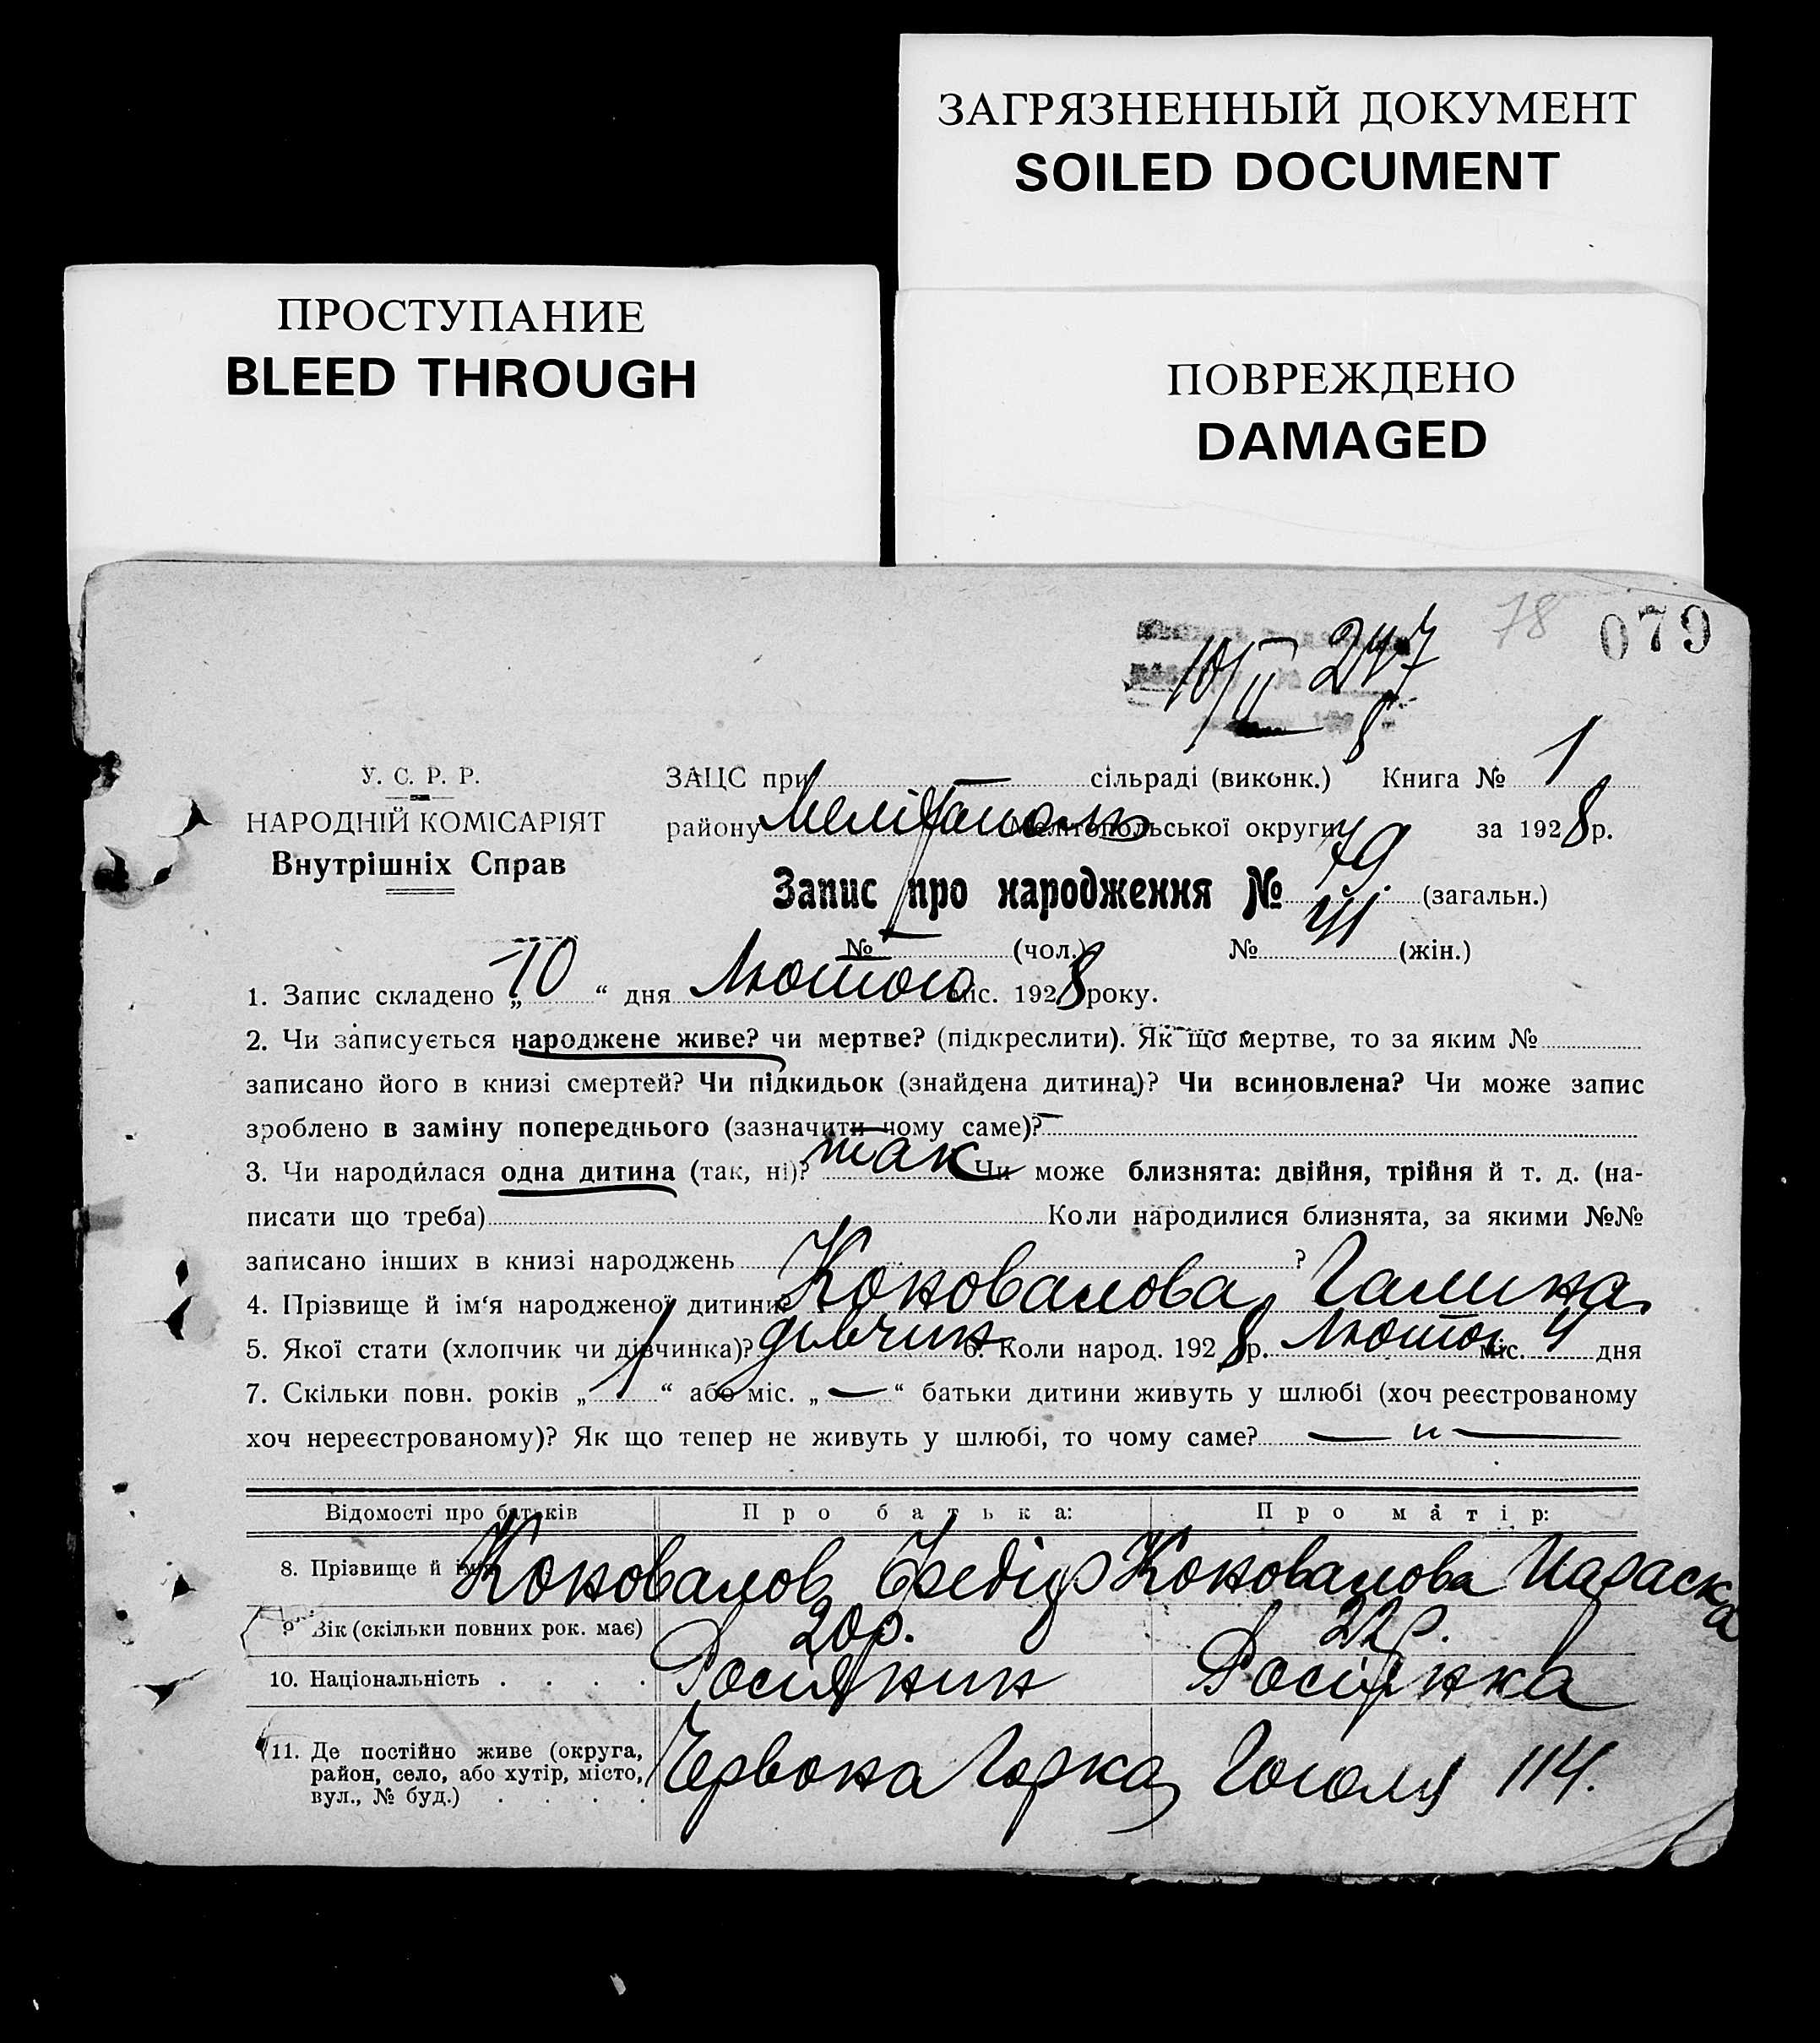 ЗАГРЯЗНЕННЫЙ ДОКУМЕНТ
SOILED DOCUMENT
ПРОСТУПАНИЕ
BLEED THROUGH
ПОВРЕЖДЕНО
DAMAGED
78 079
10/II 247
8
У. С. Р. Р.
НАРОДНІЙ КОМІСАРІЯТ
Внутрішніх Справ
ЗАЦС при — сільраді (виконк.) Книга № 1
району Мелітополь Мелітопольської округи за 1928 р.
Запис про народження № 79 (загальн.)
№ — (чол.) № 41 (жін.)
1. Запис складено „10“ дня Лютого міс. 1928 року.
2. Чи записується народжене живе? чи мертве? (підкреслити). Як що мертве, то за яким №
записано його в книзі смертей? Чи підкидьок (знайдена дитина)? Чи всиновлена? Чи може запис
зроблено в заміну попереднього (зазначити чому саме)? —
3. Чи народилася одна дитина (так, ні)? так Чи може близнята: двійня, трійня й т. д. (на-
писати що треба) Коли народилися близнята, за якими №№
записано інших в книзі народжень ?
4. Прізвище й ім‘я народженої дитини? Коновалова Галина
5. Якої стати (хлопчик чи дівчинка)? дівчин 6. Коли народ. 1928 р. Лютог міс. 4 дня
7. Скільки повн. років „1“ або міс. „—“ батьки дитини живуть у шлюбі (хоч реєстрованому
хоч нереєстрованому)? Як що тепер не живуть у шлюбі, то чому саме? — „ —
Відомості про батьків Про батька: Про матір:
8. Прізвище й ім‘я Коновалов Федір Коновалова Параска
9. Вік (скільки повних рок. має) 20р. 22р.
10. Національність . . . . Росіянин Росіянка
11. Де постійно живе (округа,
район, село, або хутір, місто,
вул., № буд.) . . . . Червона Горка Гоголя 114.